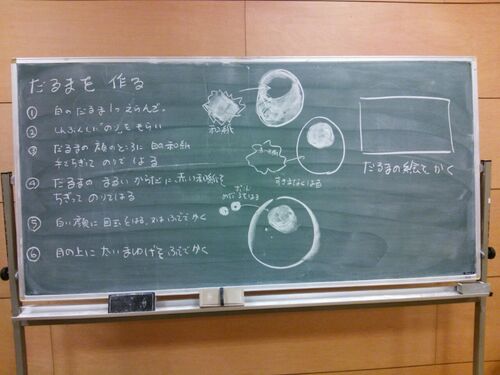 だるまを 作る
① 白のだるま1つえらんで、
② しんぶんしに"のり"をもらい
③ だるまの顔のところに 白の和紙
手でちぎって のりで はる
④ だるまの まるい からだに、赤い和紙を
ちぎって のりではる
⑤ 白い顔に 目玉をはる、又は ふでで かく
⑥ 目の上に 太い まゆげを ふでで かく
和紙
すきまなくはる
だるまの絵を かく